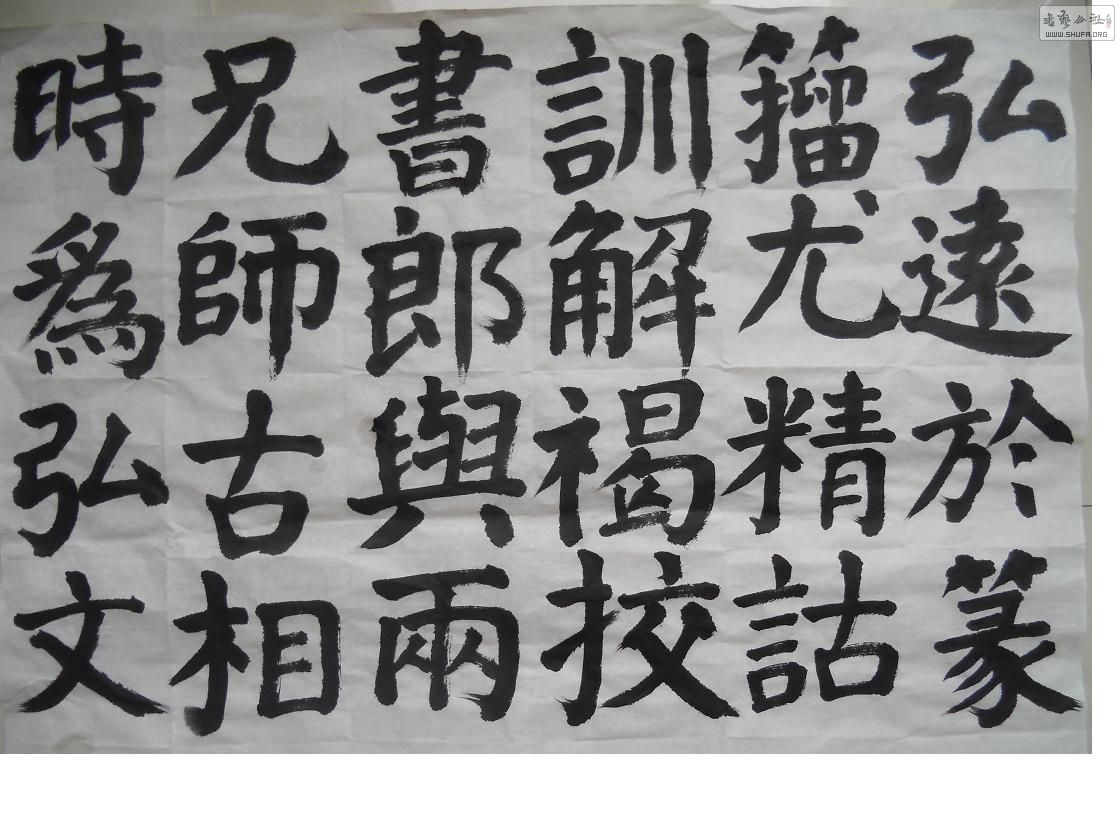 弘遠於篆
籀尤精詁
訓解褐挍
書郎與兩
兄師古相
時爲弘文
書藝公社
WWW.SHUFA.ORG